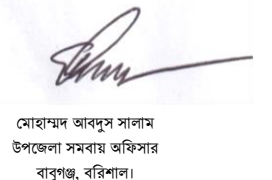 মোহাম্মদ আবদুস সালাম
উপজেলা সমবায় অফিসার
বাবুগঞ্জ, বরিশাল।